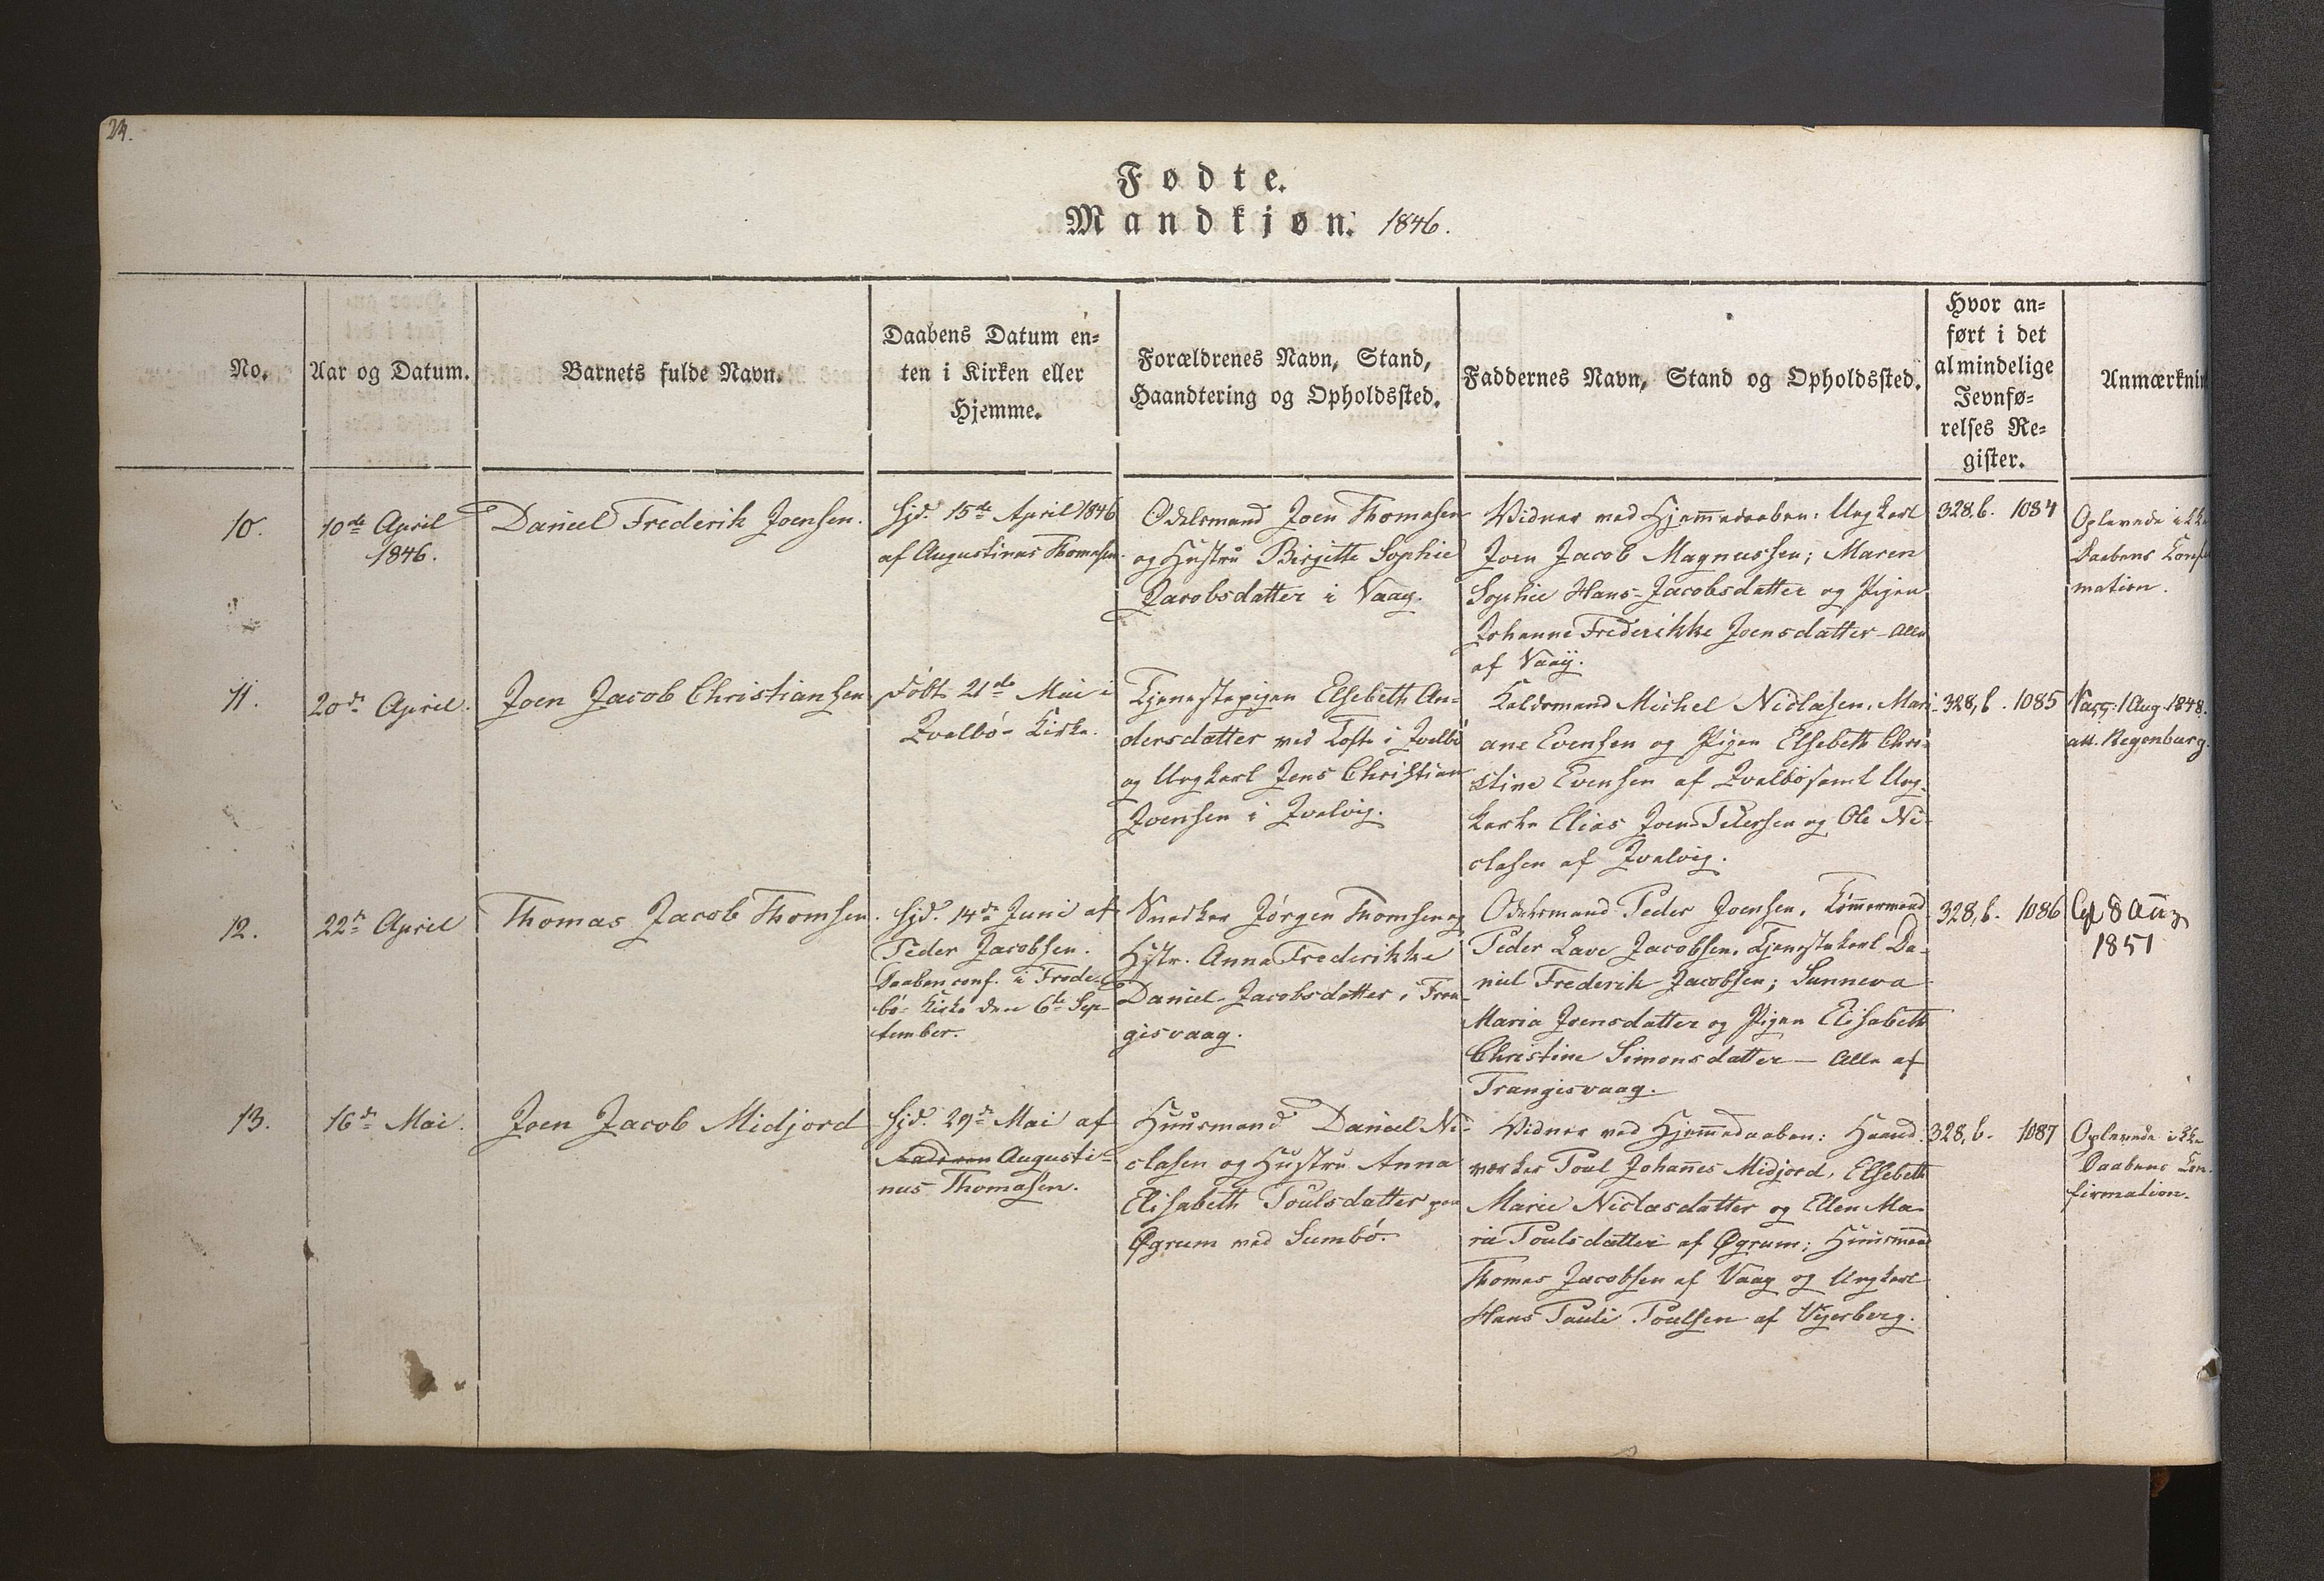 24.
Fødte.
Mandkjøn. 1846.
No.
Aar og Datum.
Barnets fulde Navn.
Daabens Datum en-
ten i Kirken eller
Hjemme.
Forældrenes Navn, Stand,
Haandtering og Opholdssted.
Faddernes Navn, Stand og Opholdssted.
Hvor an-
ført i det
almindelige
Jevnfø-
relses Re-
gister.
Anmærknin
10.
10de April
1846.
Daniel Frederik Joensen.
Hjd. 15de April 1846
af Augustinus Thomasen.
Odelsmand Joen Thomasen
og Hustru Birgitte Sophie
Jacobsdatter i Vaag.
Vidner ved Hjemmedaaben: Ungkarl
Joen Jacob Magnussen; Maren
Sophie Hans-Jacobsdatter og Pigen
Johanne Frederikke Joensdatter - Alle
af Vaag.
328,b. 1084
Oplevede ikke
Daabens Conf
mation.
11.
20de April.
Joen Jacob Christiansen
Født 21de Mai i
Qvalbø- Kirke.
Tjenestepigen Elsebeth An-
dersdatter ved Tofte i Qvalbø
og Ungkarl Jens Christian
Joensen i Qvalvig.
Michel Niclasen, Mari-
ane Evensen og Pigen Elsebeth Chri-
stine Evensen af Qvalbø samt Ung-
karle Elias Joen Petersen og Ole Ni-
clasen af Qvalvig.
328,b. 1085
Vacc: 1 Aug. 1848.
att. Regenburg.
12.
22de April
Thomas Jacob Thomsen.
Hjd. 14de Juni af
Peder Jacobsen.
Daaben conf. i Frode-
bø- Kirke den 6te Sep-
tember.
Snedker Jørgen Thomsen og
Hstr. Anna Frederikke
Daniel-Jacobsdatter, Tran-
gisvaag.
Odelsmand Peder Joensen, Tømmermand
Peder Lave Jacobsen, Tjenestekarl Da-
niel Frederik Jacobsen; Sunneva
Maria Joensdatter og Pigen Elisabeth
Christine Simonsdatter - Alle af
Trangisvaag.
328,b. 1086
8 Aug
1851
13.
16de Mai.
Joen Jacob Midjord
Hjd. 29de Mai af
Faderen Augusti-
nus Thomasen.
Huusmand Daniel Ni-
clasen og Hustru Anna
Elisabeth Poulsdatter paa
Øgrum ved Sumbø.
Vidner ved Hjemmedaaben: Haand-
værker Poul Johannes Midjord, Elsebeth
Marie Niclasdatter og Ellen Ma-
ria Poulsdatter af Øgrum; Huusmand
Thomas Jacobsen af Vaag og Ungkarl
Hans Pauli Poulsen af Vigerberg.
328,b. 1087
Oplevede ikke
Daabens Con-
firmation.